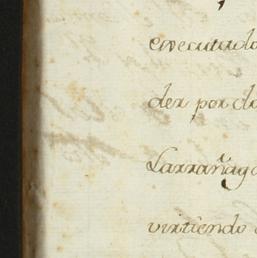 executado
der por do
Larrañag
virtiendo